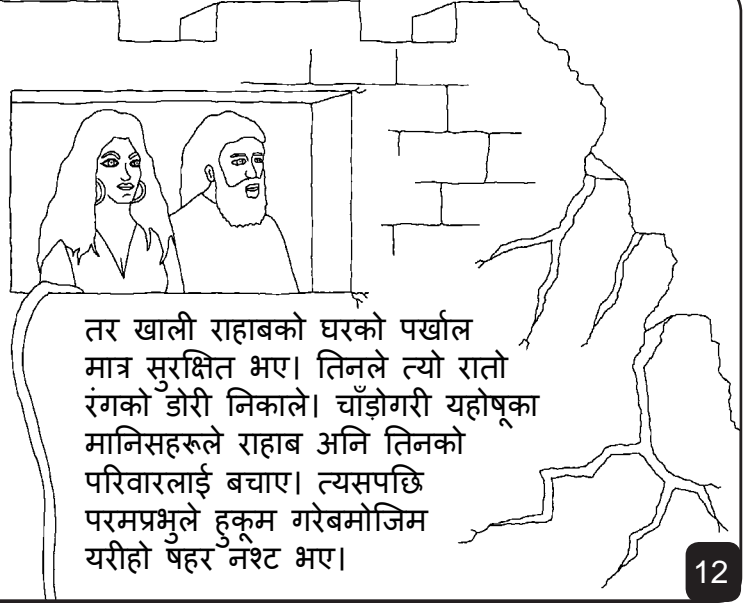 तर खाली राहाबको घरको पर्खाल
मात्र सुरक्षित भए। तिनले त्यो रातो
रंगको डोरी निकाले। चाँड़ोगरी यहोषूका
मानिसहरूले राहाब अनि तिनको
परिवारलाई बचाए। त्यसपछि
परमप्रभुले हुकूम गरेबमोजिम
यरीहो षहर नश्ट भए।
12